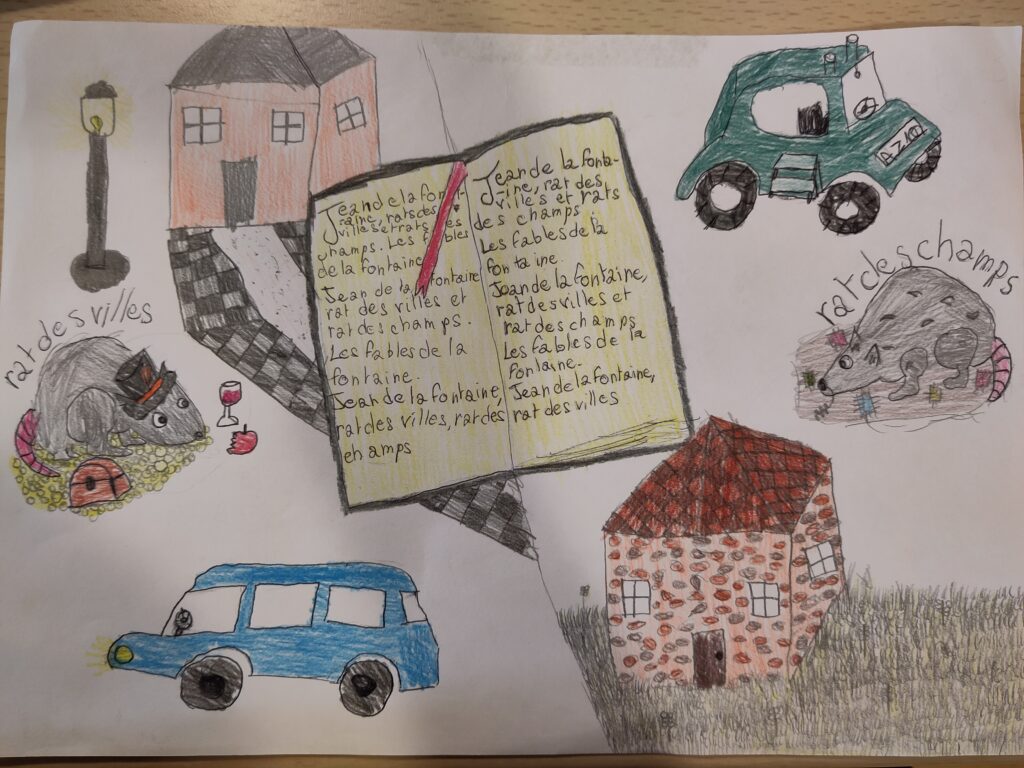 rat des villes
Jean de la fon-
taine, rats des
villes et rats des
champs. Les fables
de la fontaine
Jean de la fontaine
rat des villes et
rat des champs.
Les fables de la
fontaine.
Jean de la fontaine,
rat des villes, rat des
champs
Jean de la fonta-
ine, rat des
villes et rats
des champs
Les fables de la
fontaine.
Jean de la fontaine,
rat des villes et
rat des champs
Les fables de la
fontaine.
Jean de la fontaine,
rat des villes
rat des champs